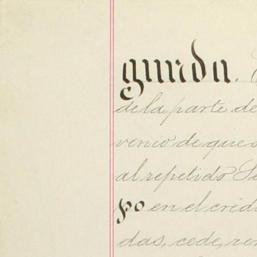 gunda.
de la parte de
venio de que s
al repetido Se
po en el créd
das, cede, ren